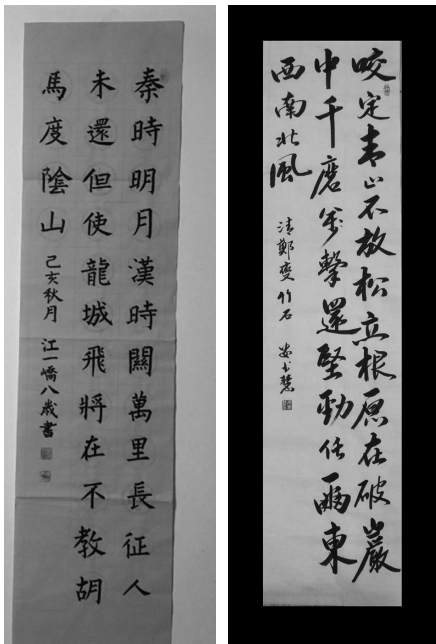 秦時明月漢時關萬里長征人
未還但使龍城飛將在不教胡
馬度陰山
己亥秋月 江一嶠八歲書
咬定青山不放松立根原在破巖
中千磨萬擊還堅勁任爾東
西南北風
清鄭燮竹石